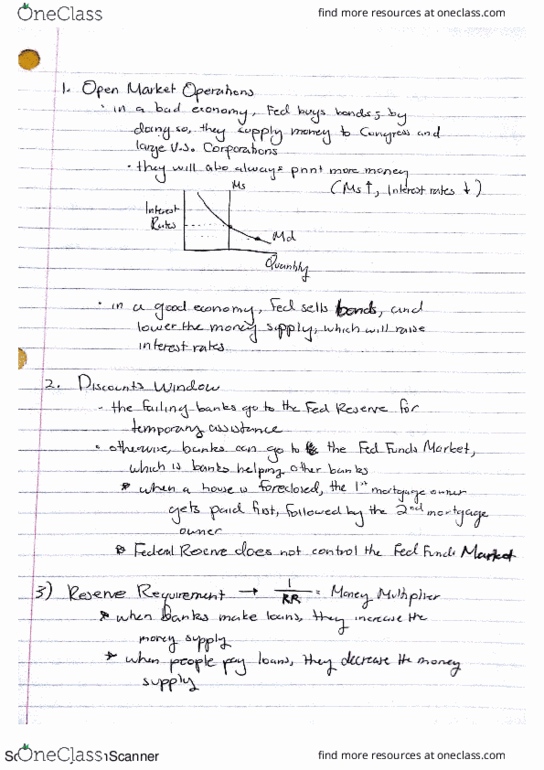 OneClass
find more resources at oneclass.com
1. Open Market Operations
· in a bad economy, Fed buys bonds; by
doing so, they supply money to Congress and
large U.S. Corporations
· they will also always print more money
(Ms ↑, Interest rates ↓)
Ms
Interest
Rates
Md
Quantity
· in a good economy, Fed sells bonds, and
lower the money supply, which will raise
interest rates.
2. Discounts Window
- the failing banks go to the Fed Reserve for
temporary assistance
· otherwise, banks can go to the Fed Funds Market,
which is banks helping other banks
* when a house is foreclosed, the 1st mortgage owner
gets paid first, followed by the 2nd mortgage
owner
* Federal Reserve does not control the Fed Funds Market
3) Reserve Requirement → 1/RR = Money Multiplier
* when banks make loans, they increase the
money supply
* when people pay loans, they decrease the money
supply
OneClass
Scanner
find more resources at oneclass.com